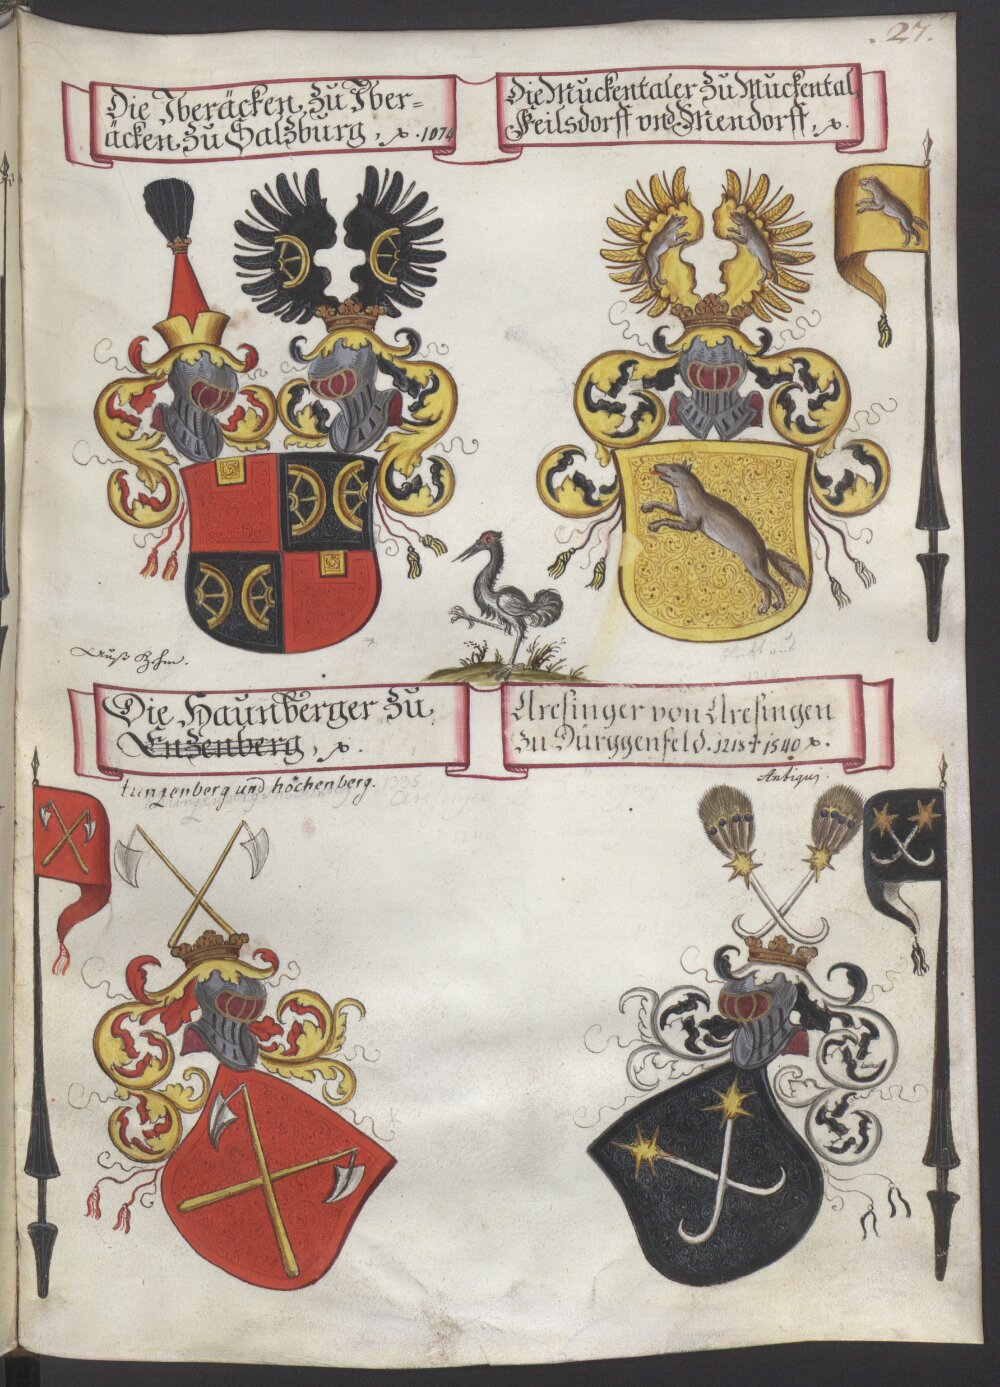 27.
Die Yberäcken, Zu Yber=
äcken Zu Saltzburg, ꝛc. 1074
Die Muckentaler Zu Muckental,
Feilsdorff vnd Mendorff, ꝛc.
Auß Behm.
Die Haunberger Zu,
Enzenberg, ꝛc.
tunzenberg und höchenberg.
1335
Aresinger von Aresingen
Zu Dürggenfeld. 1213 † 1540 ꝛc.
Antiqui.